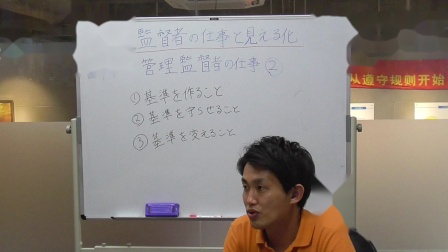 監督者の仕事と見える化
管理監督者の仕事②
①基準を作ること
②基準を守らせること
③基準を変えること
从遵守规则开始